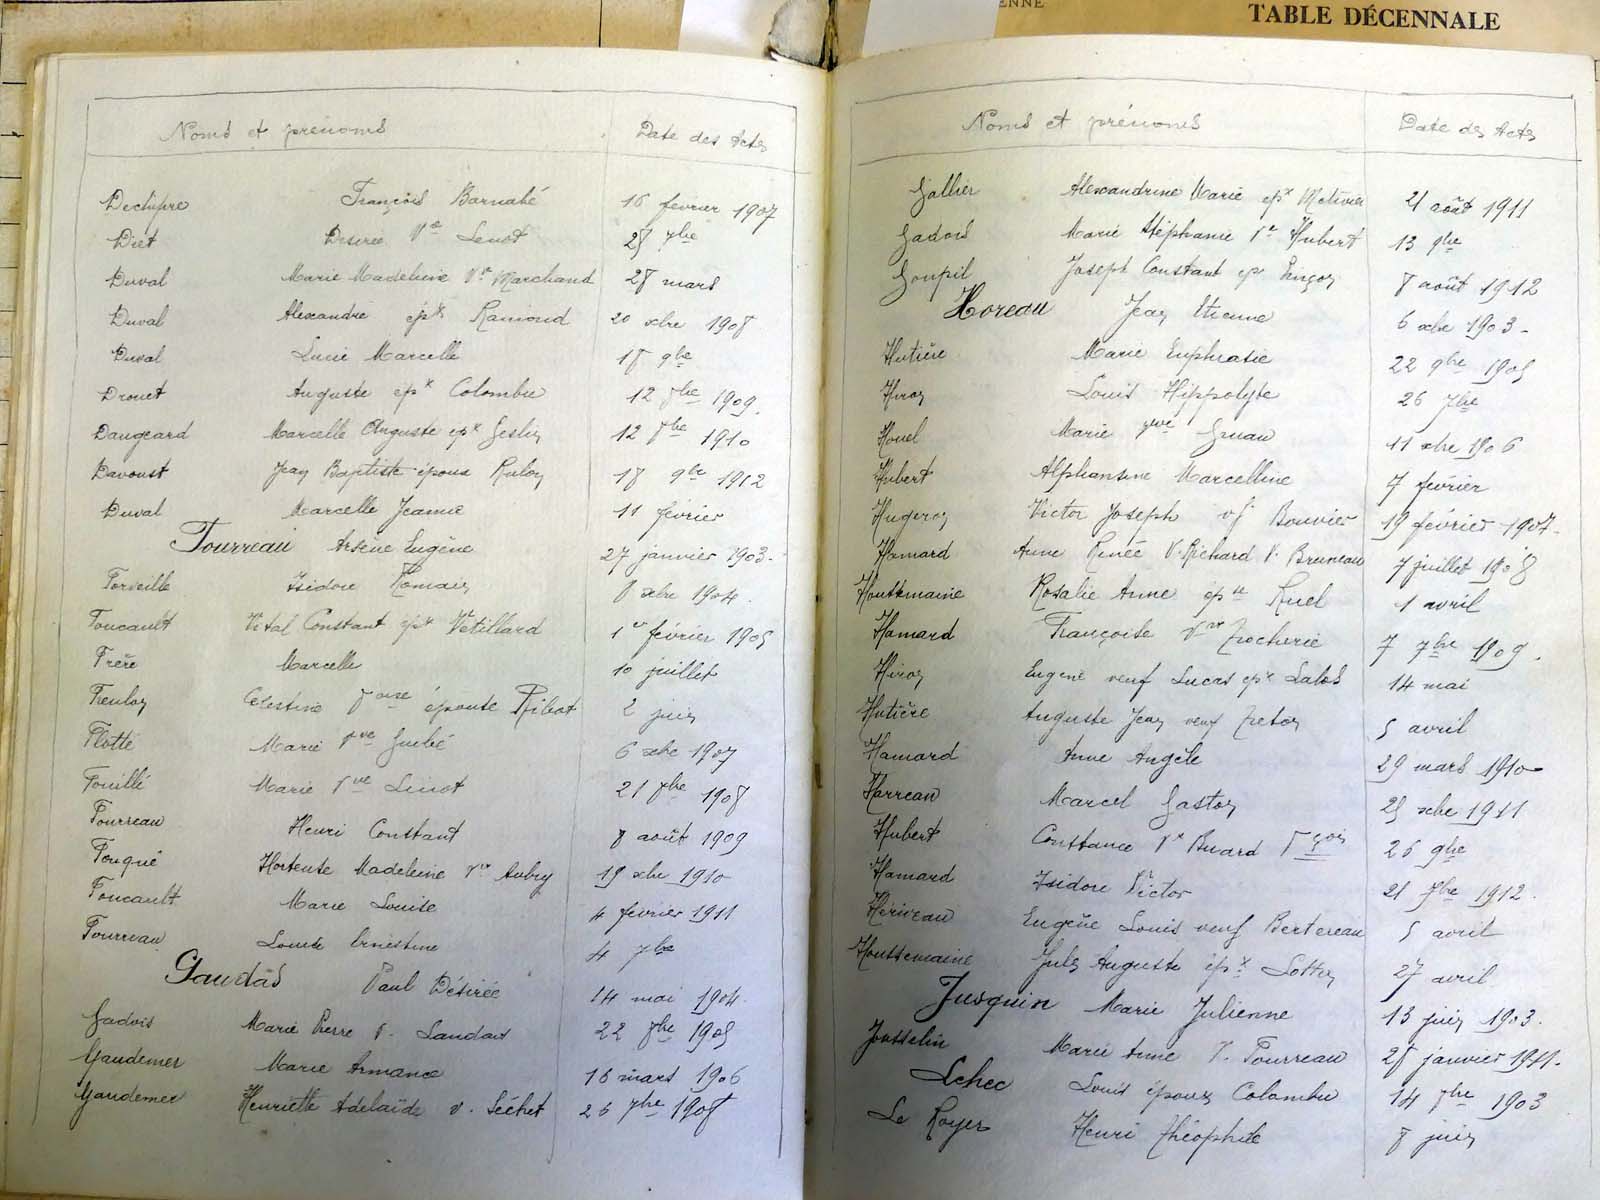 ENNE
TABLE DÉCENNALE
Noms et prénoms Date des Actes
François Barnabé 16 février 1907
Diet Désirée Vve Lenot 25 7bre
Duval Marie Madeleine Vve Marchand 28 mars
Duval Alexandre épx Ramond 20 xbre 1908
Duval Lucie Marcelle 18 9bre
Drouet Auguste épx Colombu 12 8bre 1909.
Daugeard Marcelle Auguste epx Geslin 12 7bre 1910
Davoust Jean Baptiste époux 18 9bre 1912
Duval Marcelle Jeanne 11 février
Fourreau Arsène Eugène 27 janvier 1903.
Forveille Isidore Romain 8 xbre 1904.
Foucault Vital Constant épx Vétillard 1er février 1905
Frère Marcelle 10 juillet
Celestine épouse Ribot 2 juin
Flotté Marie Vve 6 xbre 1907
Fouillé Marie Vve Linot 21 7bre 1908
Fourreau Henri Constant 8 août 1909
Fouqué Hortense Madeleine Vve Aubry 19 xbre 1910
Foucault Marie Louise 4 février 1911
Fourreau Louise Ernestine 4 7bre
Gaudas Paul Désirée 14 mai 1904.
Gadois Marie Pierre V. Landais 22 8bre 1905
Gaudemer Marie Armance 16 mars 1906
Gaudemer Henriette Adelaïde v. Séchet 26 7bre 1908
Noms et prénoms Date des Actes
Gallier Alexandrine Marie épx Métivier 21 août 1911
Gadois Marie Stéphanie Ve Hubert 13 9bre
Goupil Joseph Constant ep 8 août 1912
Horeau Jean Etienne 6 xbre 1903.
Hutière Marie Euphrasie 22 9bre 1905
Hiron Louis Hippolyte 26 7bre
Houel Marie Vve Gruau 11 xbre 1906
Hubert Alphonsine Marcelline 7 février
Hugeron Victor Joseph vf Bouvier 19 février 1907.
Hamard Anne Renée V. Richard V. Bruneau 7 juillet 1908
Houssemaine Rosalie Anne épse Ruel 1 avril
Hamard Françoise Vve Trocherie 7 7bre 1909.
Hiron Eugène veuf Lucas epx 14 mai
Hutière Auguste Jean veuf Freton 5 avril
Hamard Anne Angèle 29 mars 1910
Harreau Marcel Gaston 25 xbre 1911
Hubert Constance Vve Buard Fçois 26 9bre
Hamard Isidore Victor 21 7bre 1912.
Hériveau Eugène Louis veuf Bertereau 5 avril
Houssemaine Jules Auguste épx Lottin 27 avril
Jusquin Marie Julienne 13 juin 1903.
Jousselin Marie Anne V. Fourreau 28 janvier 1911.
Lehec Louis époux Colombu 14 7bre 1903
Le Royer Henri Théophile 8 juin